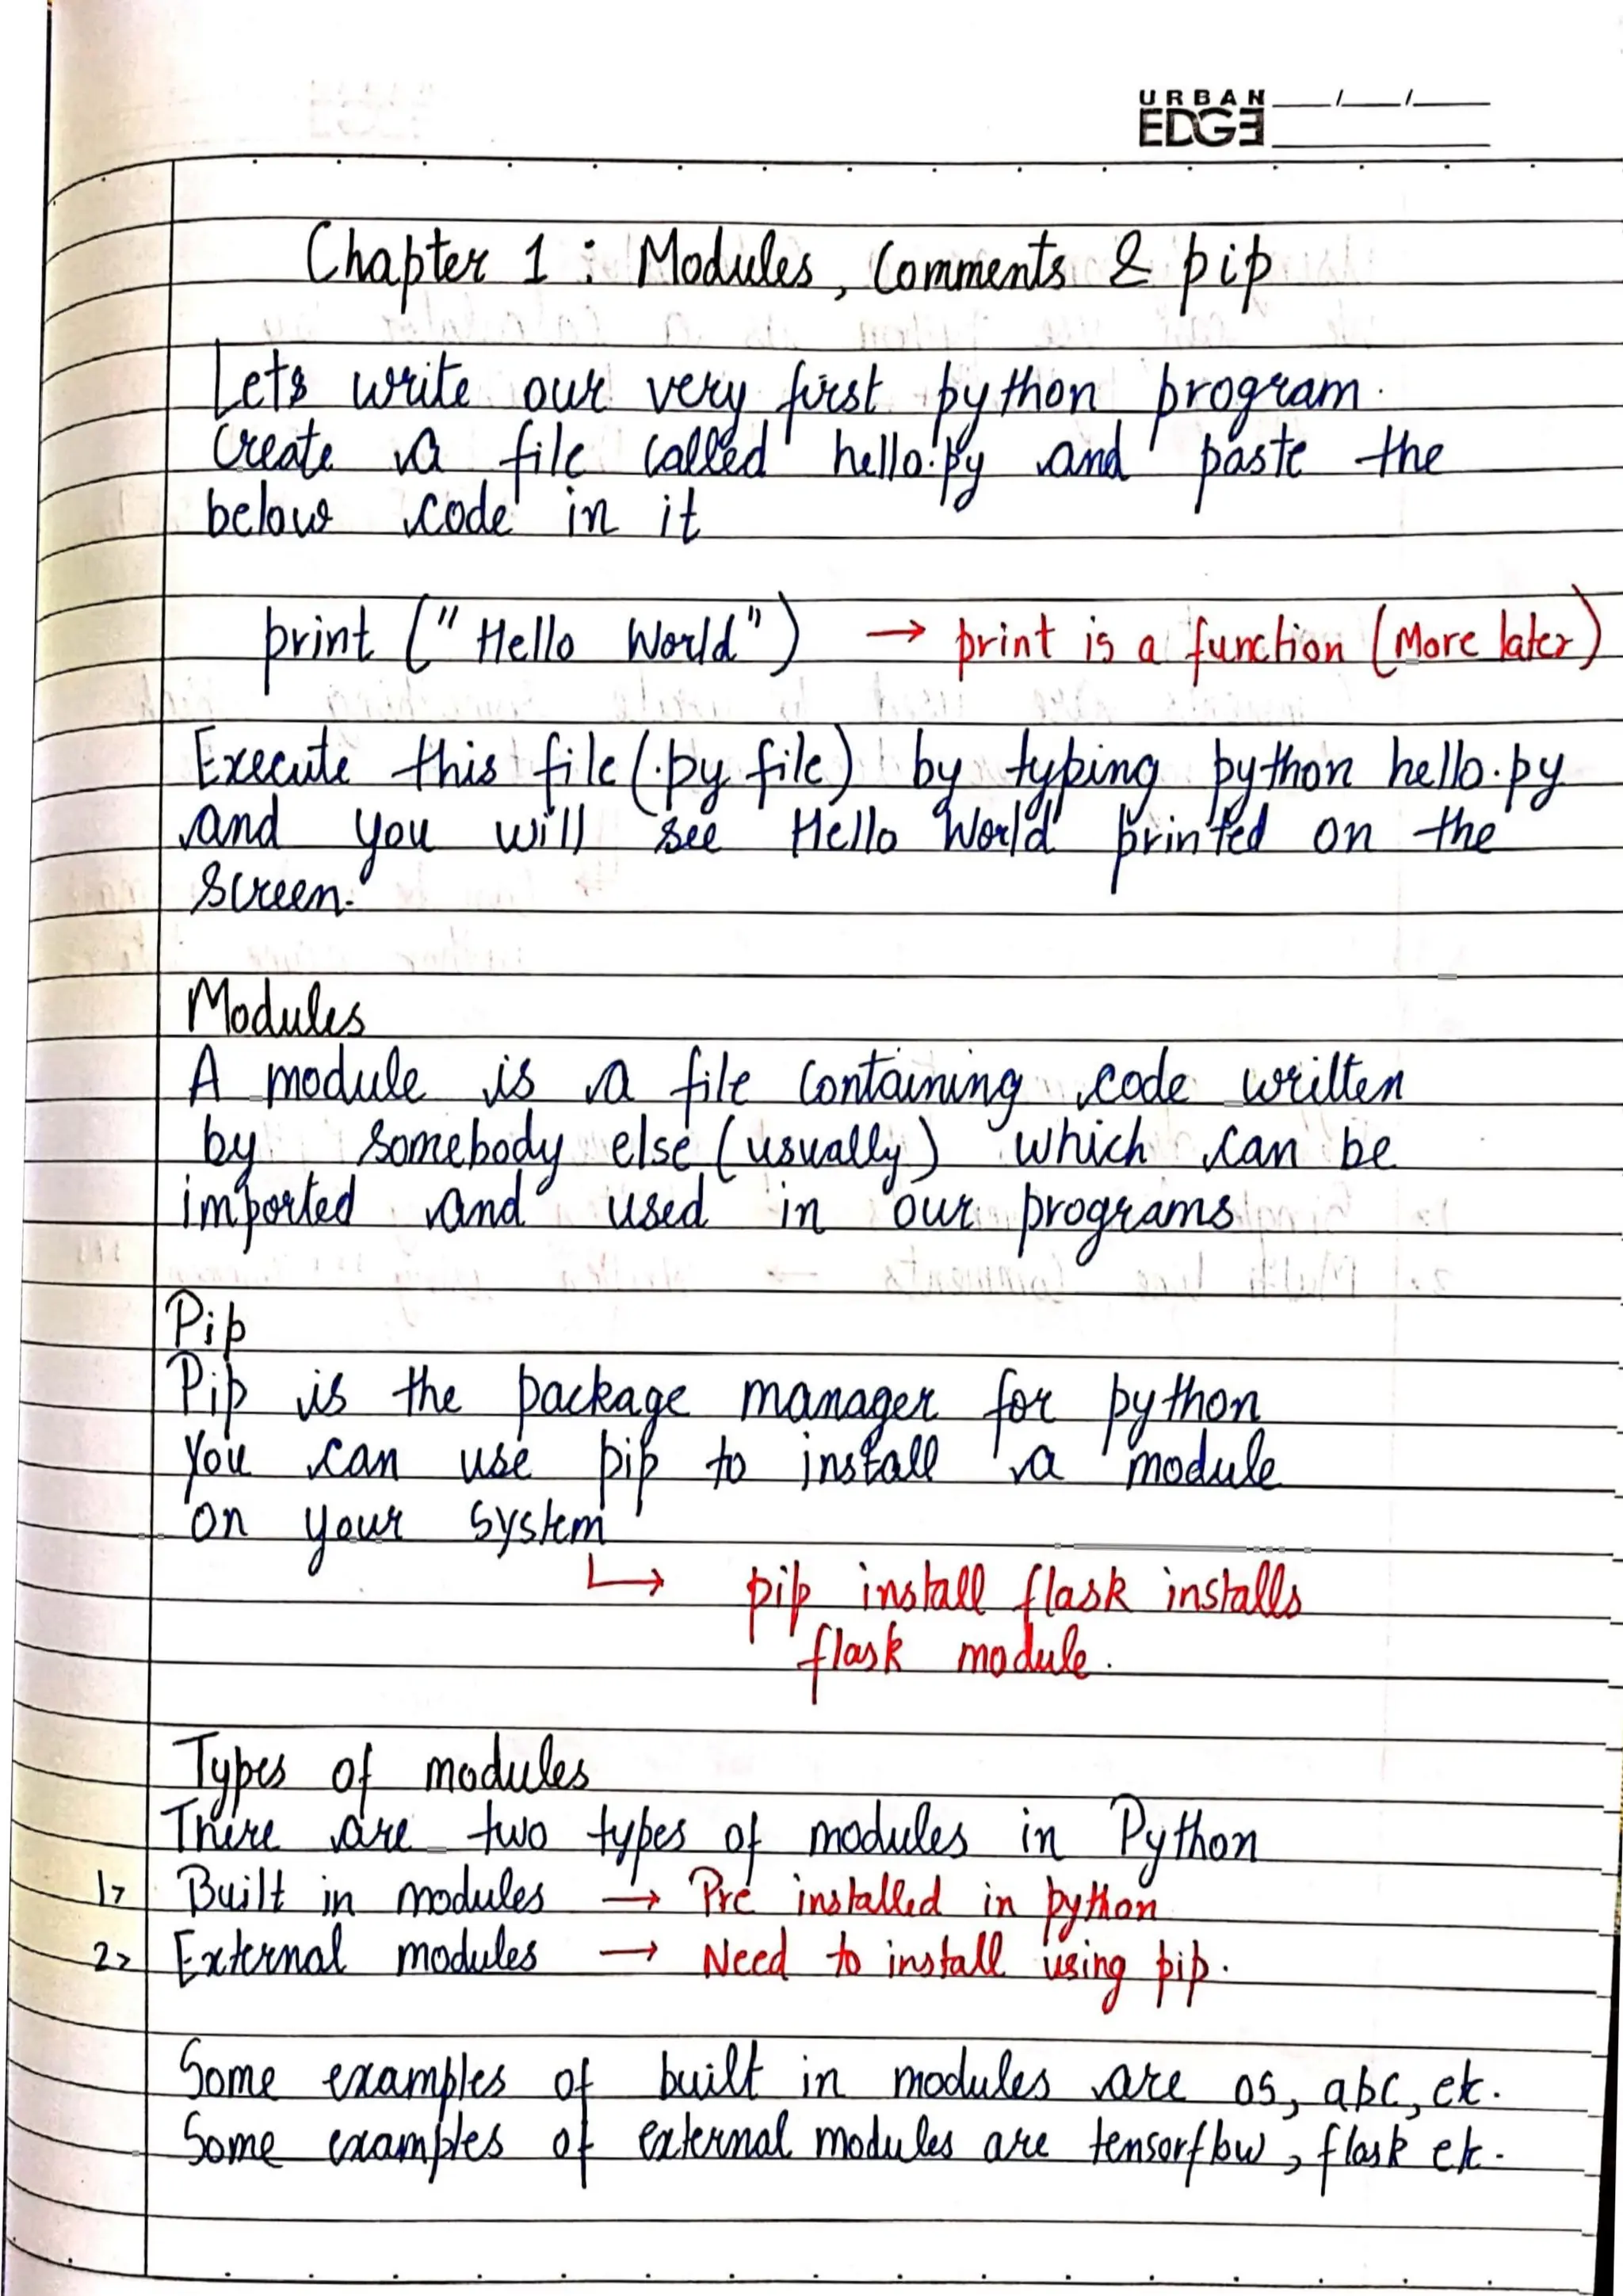 URBAN
EDGE
Chapter 1 : Modules, Comments & pip
Lets write our very first python program.
Create a file called hello.py and paste the
below code in it
print ("Hello World") → print is a function (More later)
Execute this file (.py file) by typing python hello.py
and you will see Hello World printed on the
screen.
Modules
A module is a file containing code written
by somebody else (usually) which can be
imported and used in our programs
Pip
Pip is the package manager for python
You can use pip to install a module
on your system
↳ pip install flask installs
flask module.
Types of modules
There are two types of modules in Python
1> Built in modules → Pre installed in python
2> External modules → Need to install using pip.
Some examples of built in modules are os, abc, etc.
Some examples of external modules are tensorflow, flask etc.